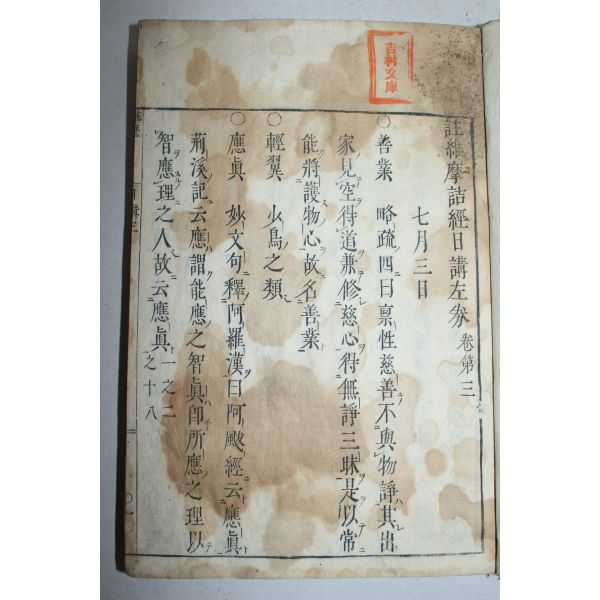 吉村文庫
註維摩詰經日講左券 卷第三
七月三日
○善業 略疏四曰稟性慈善不與物諍其出
家見空得道兼修慈心得無諍三昧是以常
能將護物心故名善業
○輕翼 少鳥之類
○應眞 妙文句釋阿羅漢曰阿颰經云應眞
荊溪記云應謂能應之智眞卽所應之理以
智應理之人故云應眞 一之二之十八